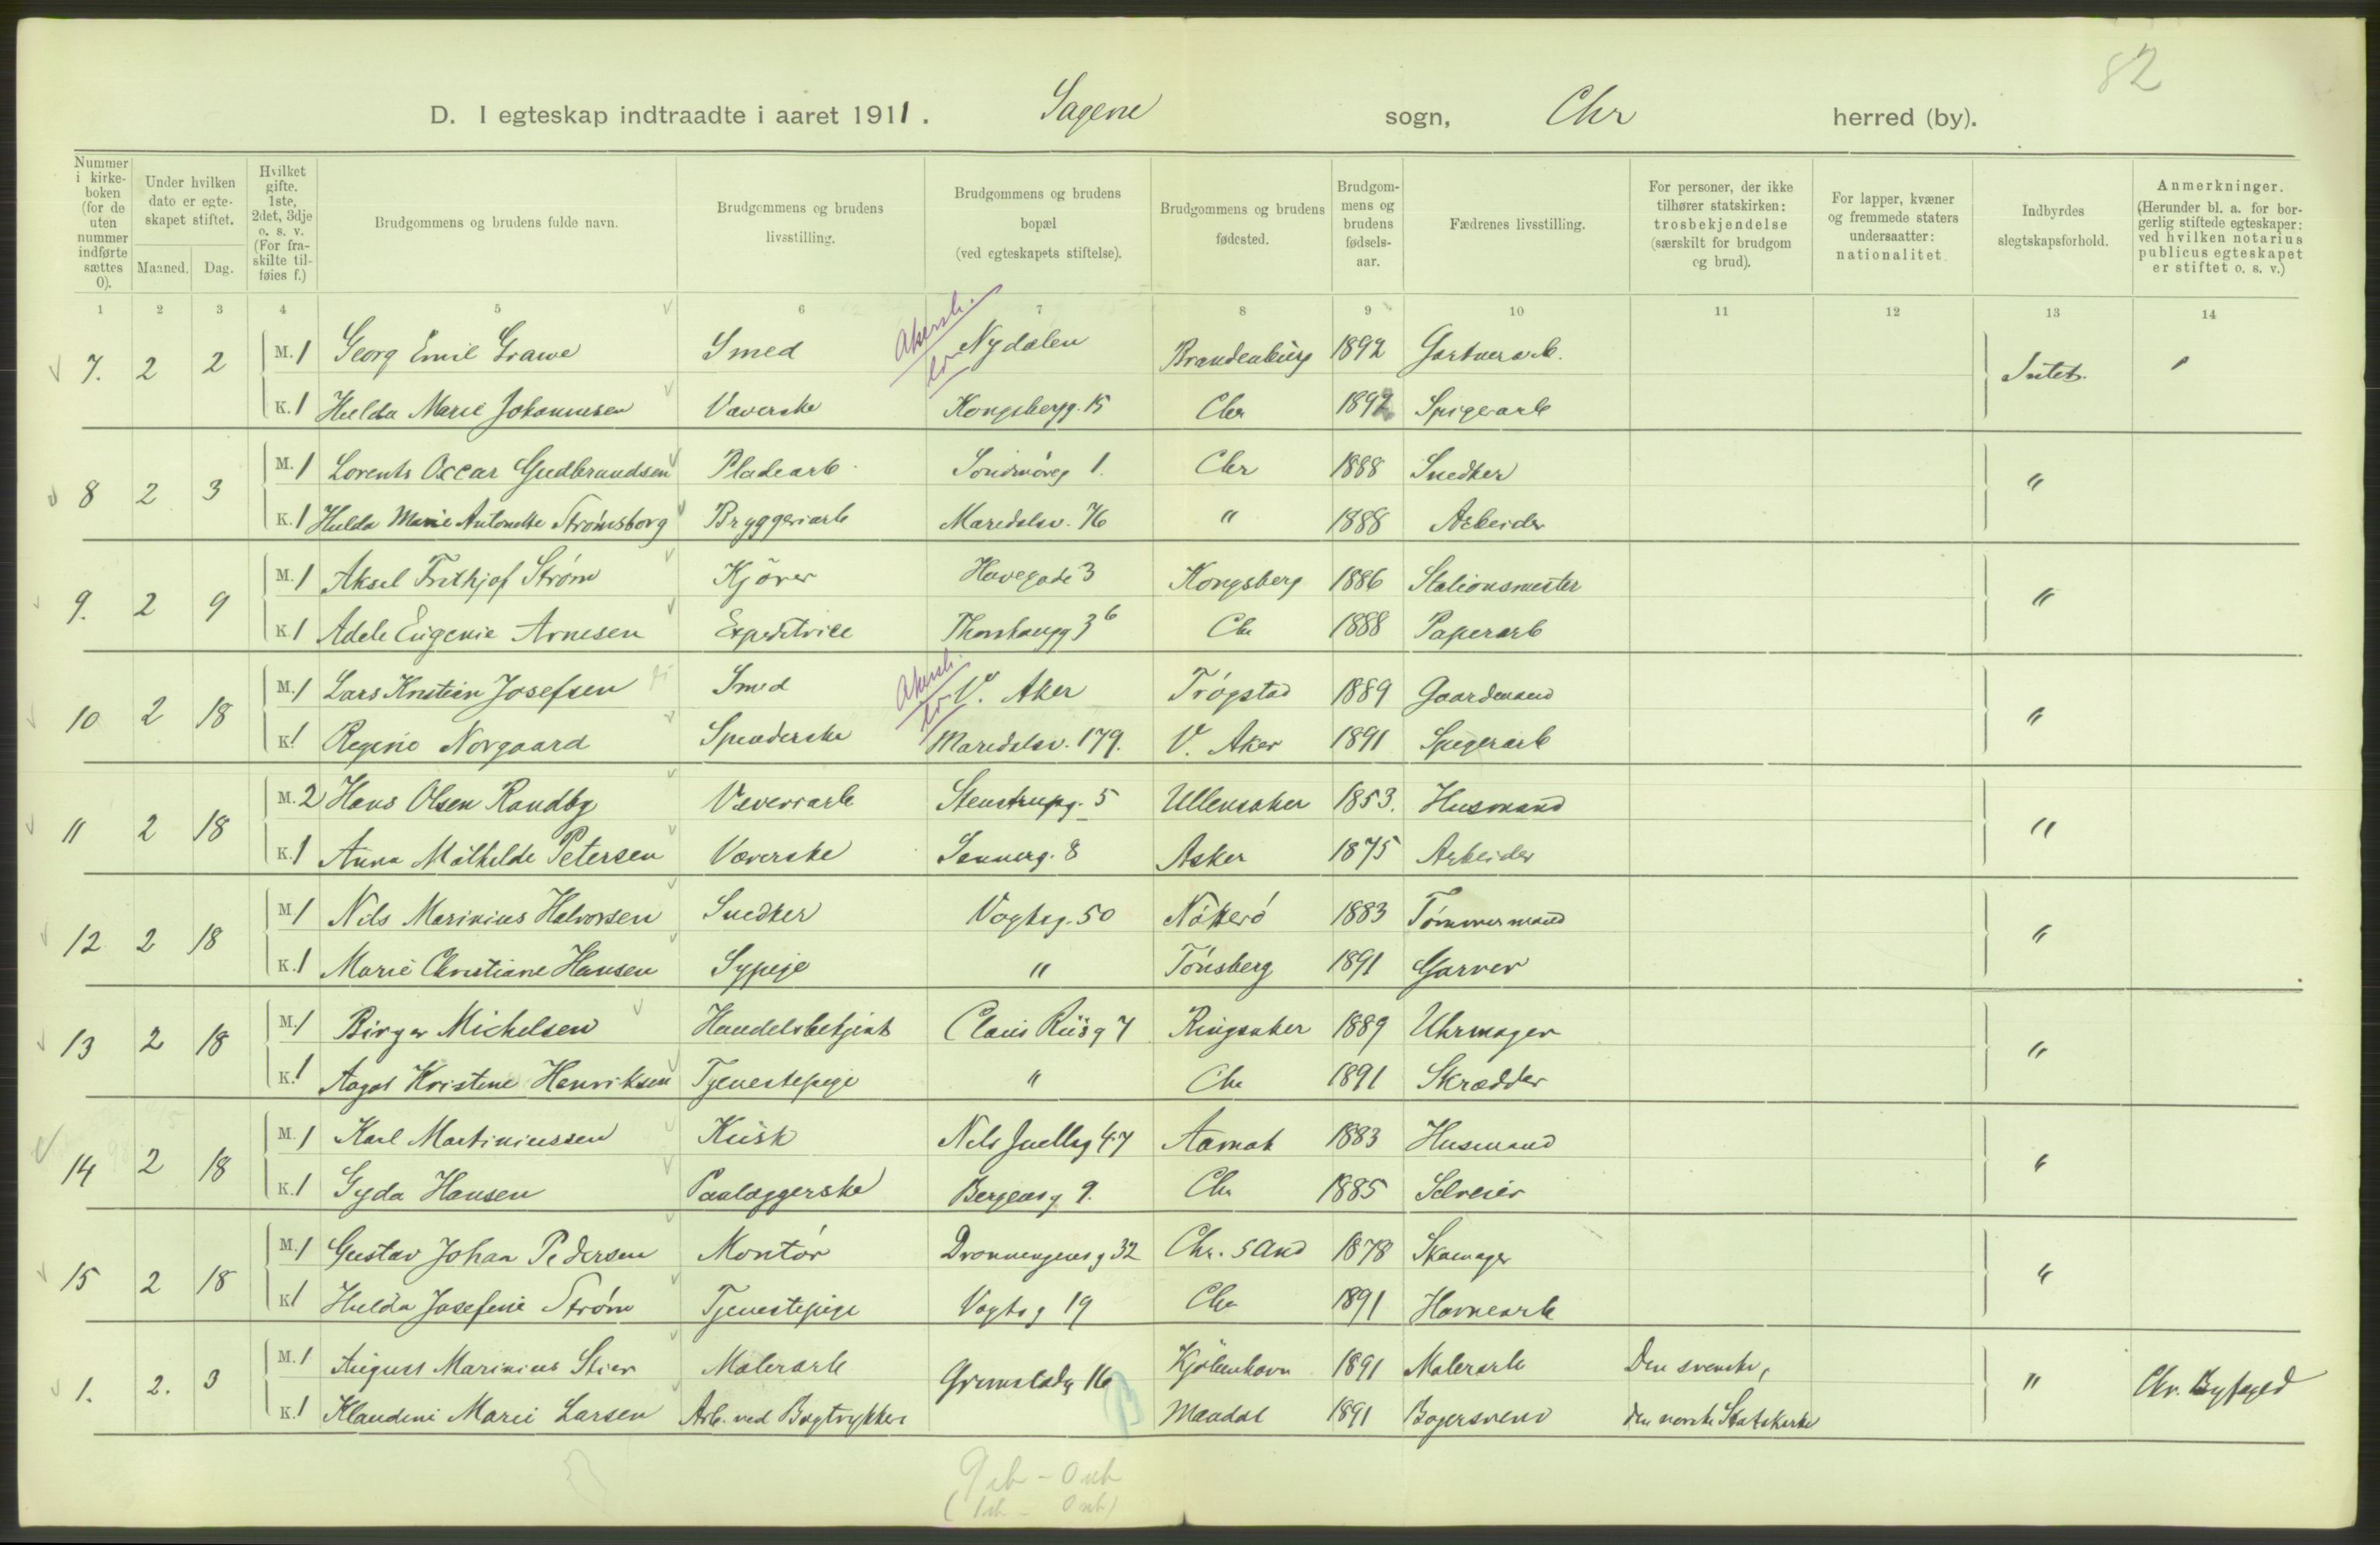 82
D. I egteskap indtraadte i aaret 1911. Sagene sogn, Chr herred (by).
Nummer i kirkeboken (for de uten nummer indførte sættes 0).
Under hvilken dato er egteskapet stiftet.
Maaned. Dag.
Hvilket gifte. 1ste, 2det, 3dje o. s. v. (For fraskilte tilføies f.)
Brudgommens og brudens fulde navn.
Brudgommens og brudens livsstilling.
Brudgommens og brudens bopæl (ved egteskapets stiftelse).
Brudgommens og brudens fødested.
Brudgommens og brudens fødselsaar.
Fædrenes livsstilling.
For personer, der ikke tilhører statskirken: trosbekjendelse (særskilt for brudgom og brud).
For lapper, kvæner og fremmede staters undersaatter: nationalitet
Indbyrdes slegtskapsforhold.
Anmerkninger. (Herunder bl. a. for borgerlig stiftede egteskaper: ved hvilken notarius publicus egteskapet er stiftet o. s. v.)
1 2 3 4 5 6 7 8 9 10 11 12 13 14
7. 2 2 M. 1 Georg Emil Grawe Smed Akersh. Nydalen Brandenburg 1892 Gartnerarb. Intet.
K. 1 Hulda Marie Johannesen Væverske Kongsbergg. 15 Chr 1892 Spigerarb
8 2 3 M. 1 Lorents Oscar Gudbrandsen Pladearb Sondmöreg 1. Chr 1888 Snedker "
K. 1 Hulda Marie Antonette Strømsborg Bryggeriarb Maridalsv. 76 " 1888 Arbeider
9. 2 9 M. 1 Aksel Frithjof Strøm Kjører Havegade 3 Kongsberg 1886 Stationsmester "
K. 1 Adele Eugenie Arnesen Expeditrice Thorshaugg 3 b Chr 1888 Papirarb
10 2 18 M. 1 Lars Kristian Josefsen Smed Akersh. V. Aker Trøgstad 1889 Gaardmand "
K 1 Regine Norgaard Spinderske Maridalsv. 179. V. Aker 1891 Spigerarb
11 2 18 M. 2 Hans Olsen Randby Væveriarb Stenstrupg. 5 Ullensaker 1853. Husmand "
K. 1 Anna Mathilde Petersen Væverske Sannerg. 8 Asker 1875 Arbeider
12 2 18 M 1 Nils Marinius Halvorsen Snedker Vogtsg. 50 Nøtterö 1883 Tømmermand "
K. 1 Marie Christiane Hansen Sypige " Tönsberg 1891 Garver
13 2 18 M. 1 Birger Michelsen Handelsbetjent Claus Riisg 7 Ringsaker 1889 Uhrmager "
K. 1 Aagot Kristine Henriksen Tjenestepige " Chr 1891 Skrædder
14 2 18 M. 1 Karl Martiniussen Kusk Nils Juelsg 47 Aamot 1883 Husmand "
K. 1 Gyda Hansen Paalæggerske Bergensg 9. Chr 1885 Selveier
15 2 18 M. 1 Gustav Johan Pedersen Montør Dronningensg 32 Chr. sand 1878 Skomager "
K 1 Hulda Josefine Strøm Tjenestepige Vogtsg 19 Chr 1891 Havnearb
1. 2. 3 M. 1 August Marinius Stier Malerarb Grimstadg 16 Kjøbenhavn 1891 Malerarb Den svenske, " Chr. Byfoged
K. 1 Klaudine Marie Larsen Arb. ved Bogtrykkeri Mandal 1891 Bagersvend den norske Statskirke